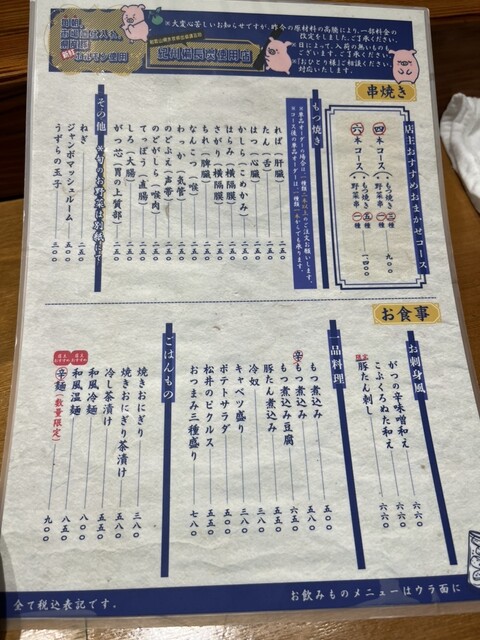 ※大変心苦しいお知らせですが、昨今の原材料の高騰により、一部料金の
改定をしました。ご了承ください。
※日によって、入荷の無いものも
ございます。ご了承ください。
※【おひとり様】ご相談ください。
対応いたします。
紀州備長炭使用店
串焼き
店主おすすめおまかせコース
四本コース もつ焼き 三種 野菜串 一種 九〇〇
六本コース もつ焼き 五種 野菜串 一種 一四〇〇
もつ焼き
れば(肝臓) 二五〇
たん(舌) 二五〇
はつ(心臓) 二五〇
かしら(こめかみ) 二五〇
はらみ(横隔膜) 二五〇
さがり(横隔膜) 二五〇
ちれ(脾臓) 二五〇
なんこつ(喉) 二五〇
わっか(気管) 二五〇
のどぶえ(声帯) 二五〇
のどがしら(喉肉) 二五〇
てっぽう(直腸) 二五〇
しろ(大腸) 二五〇
がつ芯(胃の上質部) 二五〇
その他 ※旬のお野菜は別紙にて
ねぎ 二五〇
ジャンボマッシュルーム 三五〇
うずらの玉子 三〇〇
お食事
お刺身風
がつの辛味噌和え 六六〇
こぶくろぬた和え 六六〇
限定
豚たん刺し 六六〇
一品料理
もつ煮込み 五五〇
辛もつ煮込み 五五〇
もつ煮込み豆腐 六五〇
豚たん煮込み
冷奴 三八〇
キャベツ盛り 三八〇
ポテトサラダ 五五〇
松井のピクルス 五五〇
おつまみ三種盛り 七八〇
ごはんもの
焼きおにぎり 三八〇
焼きおにぎり茶漬け 五五〇
冷し茶漬け 五五〇
和風冷麺 八五〇
和風温麺 八五〇
辛麺(数量限定) 九〇〇
全て税込表記です。
お飲みものメニューはウラ面に